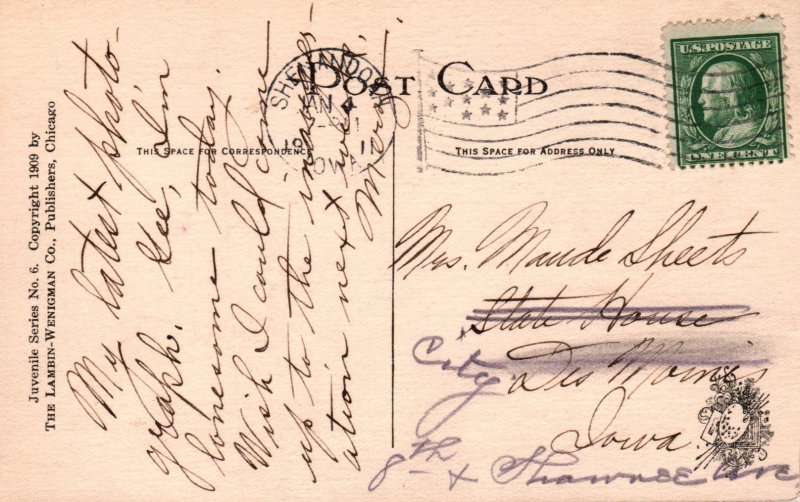 Juvenile Series No. 6. Copyright 1909 by
THE LAMBIN-WENIGMAN CO., Publishers, Chicago
My latest photo-
graph. Gee, I'm
lonesome today.
Wish I could come
up to the inaugur-
ation next week.
Merry
POST CARD
SHENANDOAH
JAN 4
1911
IOWA
THIS SPACE FOR CORRESPONDENCE
THIS SPACE FOR ADDRESS ONLY
U.S. POSTAGE
ONE CENT
Mrs. Maude Sheets
State House
City
Des Moines
Iowa
8th + Shawnee Ave